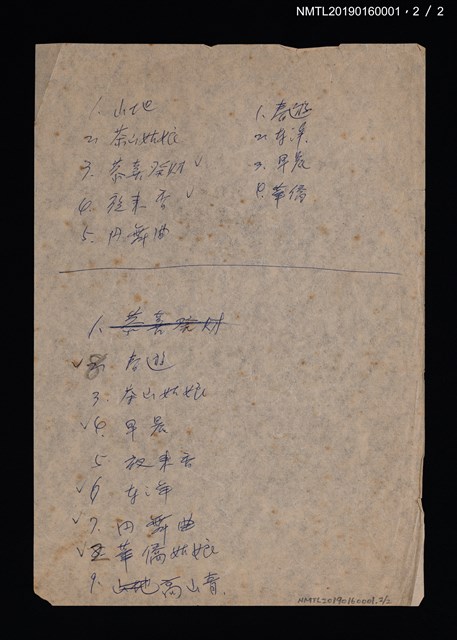 NMTL20190160001，2 / 2
1. 山地
2. 茶山姑娘
3. 恭喜發財 ✓
4. 夜来香 ✓
5. 円舞曲
1. 春遊
2. 东洋
3. 早晨
4. 華僑
1. 恭喜發財
✓ 2. 春遊
3. 茶山姑娘
✓ 4. 早晨
5 夜来香
✓ 6 东洋
✓ 7. 円舞曲
✓ 華僑姑娘
9. 山地 高山青
NMTL20190160001.2/2